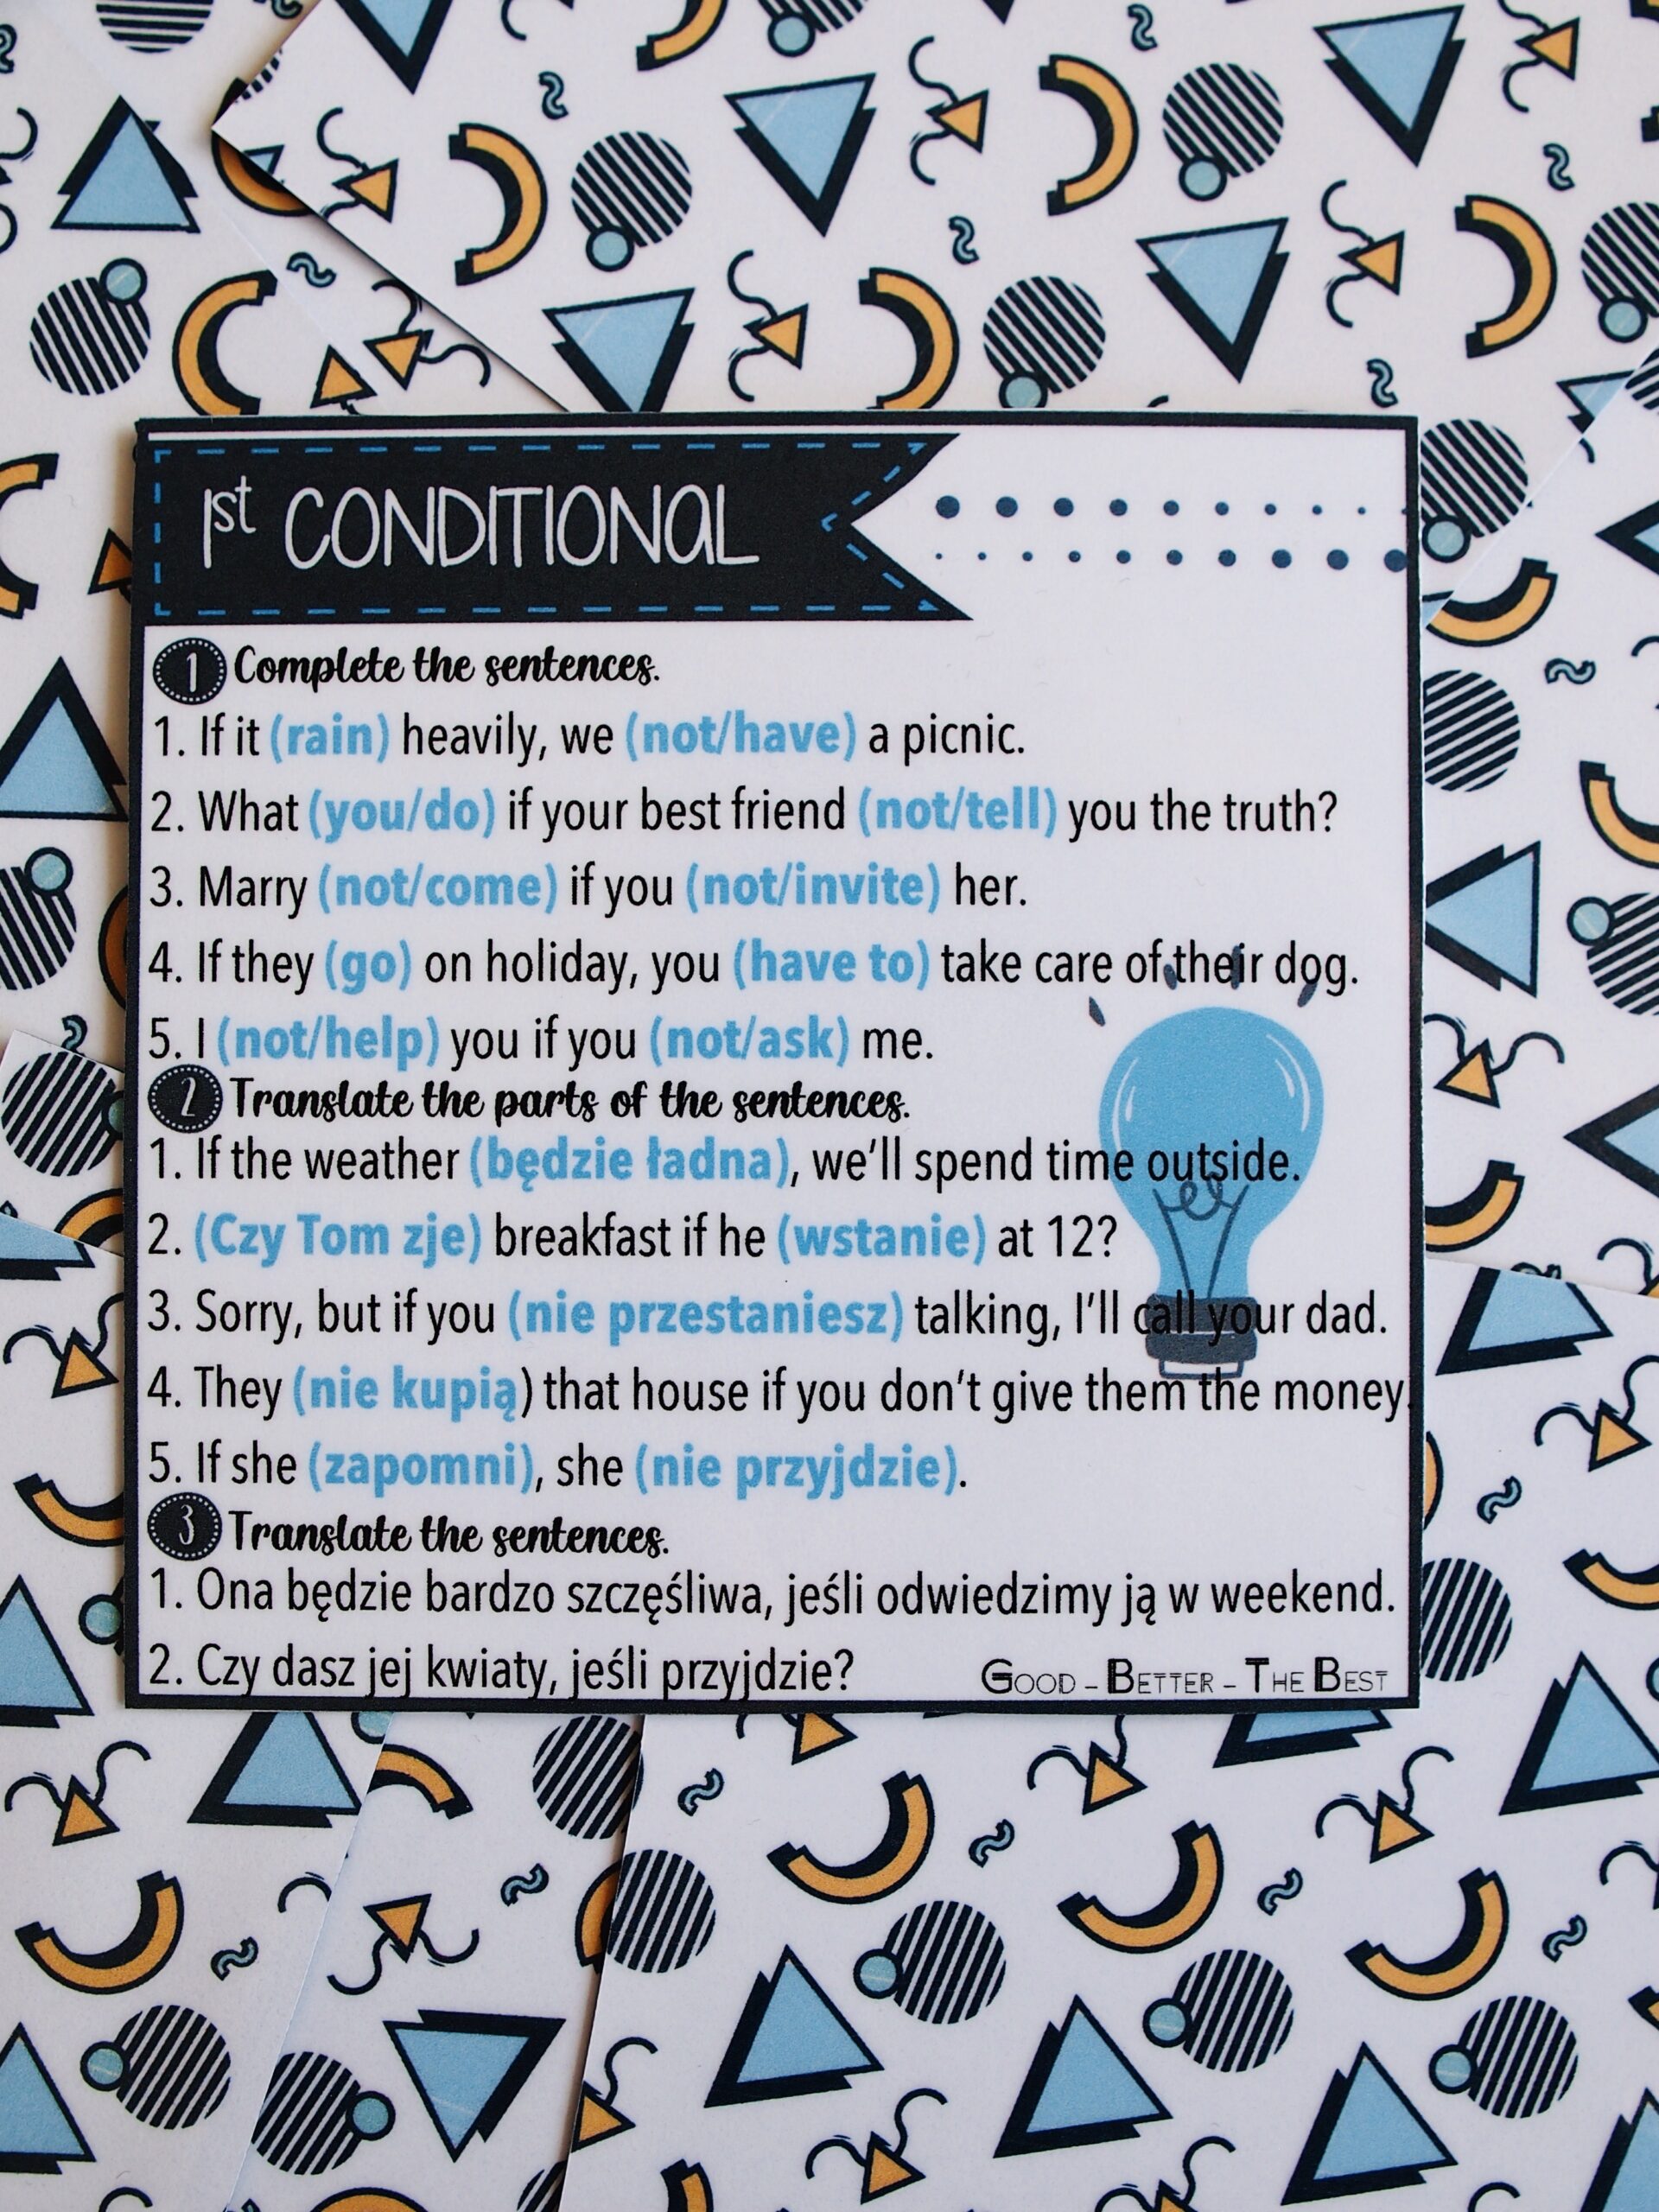 1st CONDITIONAL
1 Complete the sentences.
1. If it (rain) heavily, we (not/have) a picnic.
2. What (you/do) if your best friend (not/tell) you the truth?
3. Marry (not/come) if you (not/invite) her.
4. If they (go) on holiday, you (have to) take care of their dog.
5. I (not/help) you if you (not/ask) me.
2 Translate the parts of the sentences.
1. If the weather (będzie ładna), we'll spend time outside.
2. (Czy Tom zje) breakfast if he (wstanie) at 12?
3. Sorry, but if you (nie przestaniesz) talking, I'll call your dad.
4. They (nie kupią) that house if you don't give them the money.
5. If she (zapomni), she (nie przyjdzie).
3 Translate the sentences.
1. Ona będzie bardzo szczęśliwa, jeśli odwiedzimy ją w weekend.
2. Czy dasz jej kwiaty, jeśli przyjdzie?
GOOD - BETTER - THE BEST